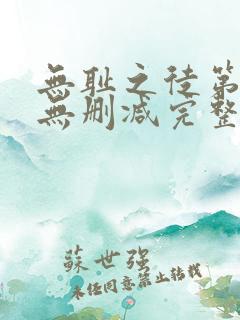 無耻之徒第
無删减完整
蘇世强
未经同意禁止转载